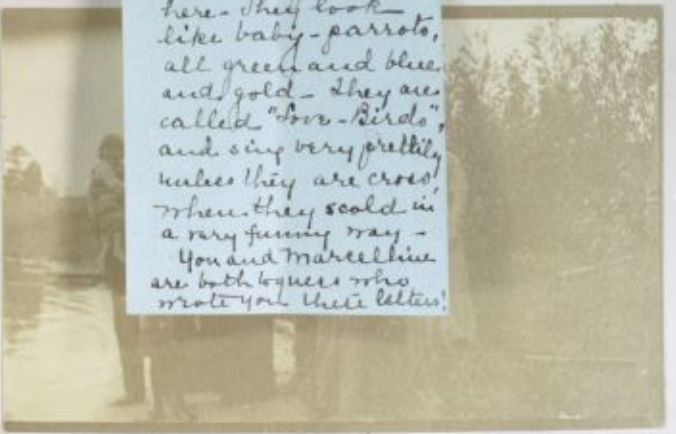 here - They look
like baby-parrots,
all green and blue
and gold - They are
called "Love-Birds",
and sing very prettily
unless they are cross,
when they scold in
a very funny way -
You and Marcelline
are both to guess who
wrote you these letters!